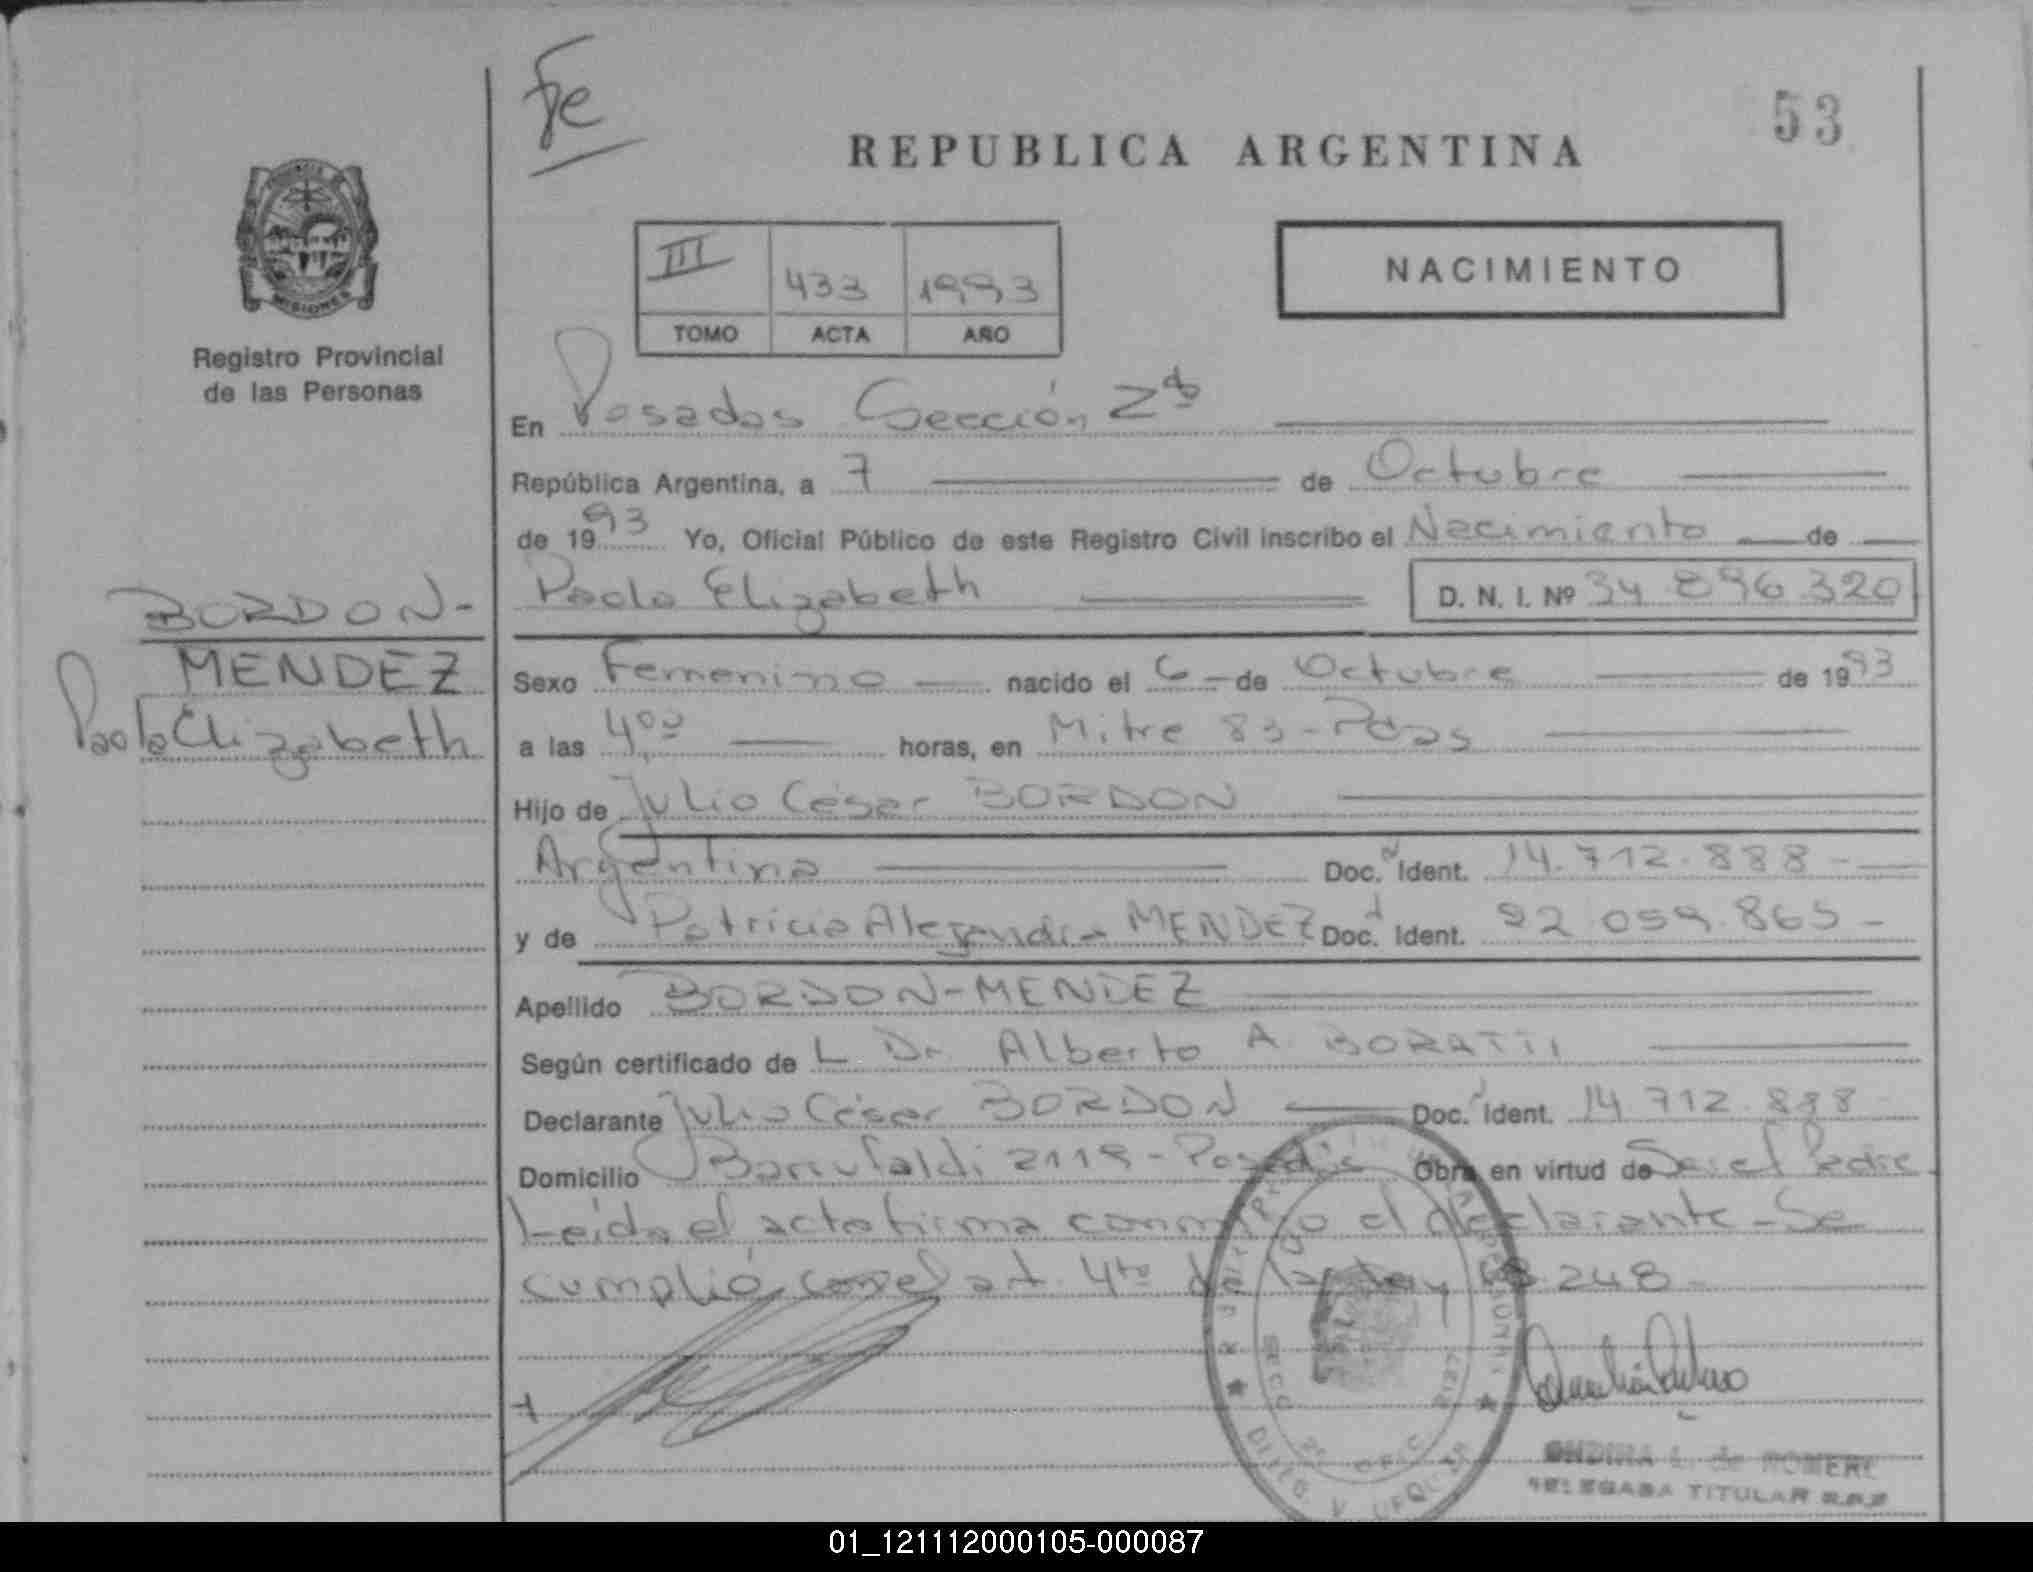 Fe
53
REPUBLICA ARGENTINA
MISIONES
Registro Provincial
de las Personas
III 433 1993
TOMO ACTA AÑO
NACIMIENTO
En Posadas Sección 2da
República Argentina, a 7 de Octubre
de 1993 Yo, Oficial Público de este Registro Civil inscribo el Nacimiento de
Paola Elizabeth D. N. I. Nº 34 896 320
BORDON-
MENDEZ
Paola Elizabeth
Sexo Femenino nacido el 6 de Octubre de 1993
a las 4 00 horas, en Mitre 83 - Pdas
Hijo de Julio César BORDON
Argentina Doc. Ident. 14.712.888 -
y de Patricia Alejandra MENDEZ Doc. Ident. 22 059.865 -
Apellido BORDON-MENDEZ
Según certificado de L Dr. Alberto A. BORATTI
Declarante Julio César BORDON Doc. Ident. 14 712.888
Domicilio 2119 - Posadas Obra en virtud de Ser el Padre
Leida el acta firma conmigo el declarante - Se
cumplió con el art. 4to de la Ley 18.248 -
ONDINA L. de ROMERO
DELEGADA TITULAR R.P.P.
01_121112000105-000087